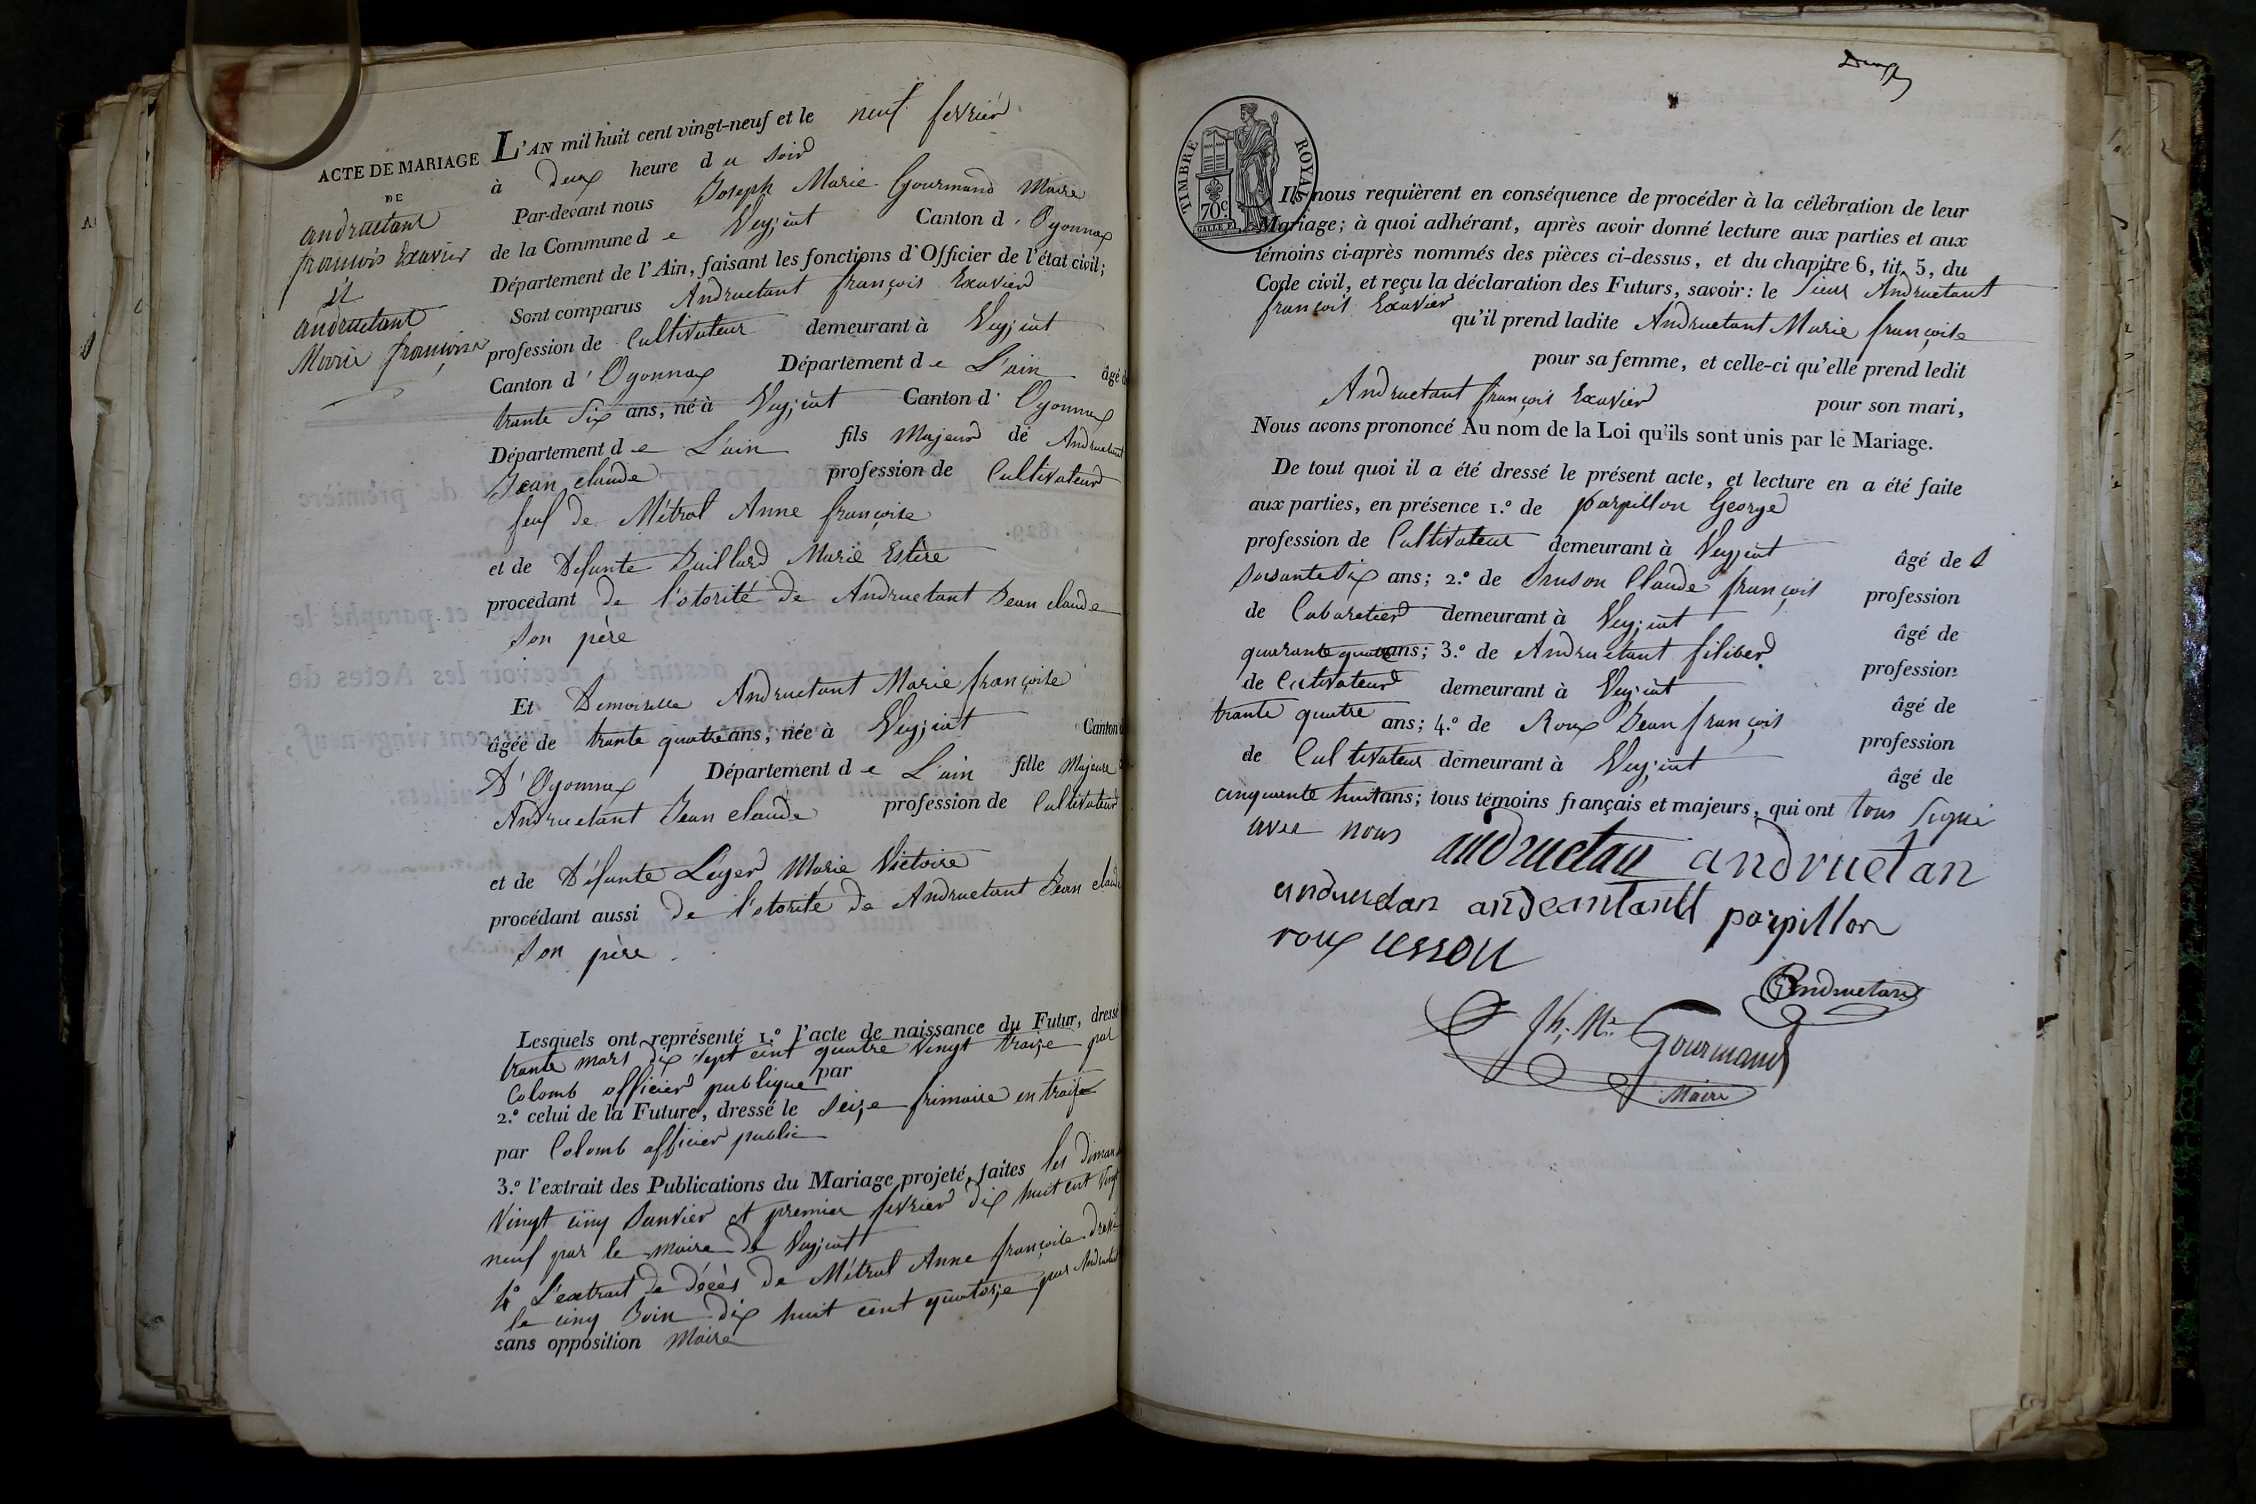 ACTE DE MARIAGE
DE
andruetant
francois Exavier
Et
andruetant
Marie françoise
L'AN mil huit cent vingt-neuf et le neuf fevrier
à deux heure du soir
Par-devant nous Joseph Marie Gourmand Maire
de la Commune de Veyziat Canton d'Oyonnax
Département de l'Ain, faisant les fonctions d'Officier de l'état civil;
Sont comparus Andruetant françois Exavier
profession de Cultivateur demeurant à Veyziat
Canton d'Oyonnax Département de L'ain âgé de
trante Six ans, né à Veyziat Canton d'Oyonnax
Département de L'ain fils Majeur de Andruetant
Jean claude profession de Cultivateur
feuf de Métral Anne françoise
et de Défunte Marie Estère
procédant de l'otorité de Andruetant Jean claude
Son père
Et Demoiselle Andruetant Marie françoise
âgée de trante quatre ans, née à Veyziat Canton
D'Oyonnax Département de L'ain fille Majeure
Andruetant Jean claude profession de Cultivateur
et de Défunte Léger Marie Victoire
procédant aussi de l'otorité de Andruetant Jean claude
Son père.
Lesquels ont représenté 1.º l'acte de naissance du Futur, dressé
trante mars dix sept cent quatre vingt traize par
Colomb officier publique par
2.º celui de la Future, dressé le Seize frimaire en traize
par Colomb officier public
3.º l'extrait des Publications du Mariage projeté, faites les diman
Vingt cinq Janvier et premier fevrier dix huit cent vingt
neuf par le maire de Veyziat
4º L'extrait de décès de Métral Anne françoise dressé
le cinq Juin dix huit cent quatorze par Andruetant
sans opposition Maire
TIMBRE ROYAL
70 c.
Ils nous requièrent en conséquence de procéder à la célébration de leur
Mariage; à quoi adhérant, après avoir donné lecture aux parties et aux
témoins ci-après nommés des pièces ci-dessus, et du chapitre 6, tit. 5, du
Code civil, et reçu la déclaration des Futurs, savoir: le Sieur Andruetant
françois Exavier qu'il prend ladite Andruetant Marie françoise
pour sa femme, et celle-ci qu'elle prend ledit
Andruetant françois Exavier pour son mari,
Nous avons prononcé Au nom de la Loi qu'ils sont unis par le Mariage.
De tout quoi il a été dressé le présent acte, et lecture en a été faite
aux parties, en présence 1.º de parpillon George
profession de Cultivateur demeurant à Veyziat âgé de
Soisante Six ans; 2.º de Claude françois profession
de Cabaretier demeurant à Veyziat âgé de
quarante quatre ans; 3.º de Andruetant filiber profession
de Cultivateur demeurant à Veyziat âgé de
trante quatre ans; 4.º de Roux Jean françois profession
de Cultivateur demeurant à Veyziat âgé de
cinquante huit ans; tous témoins français et majeurs, qui ont tous Signé
avec nous andruetan andruetan
parpillon
roux
Andruetan
Jh. Mie Gourmand
Maire